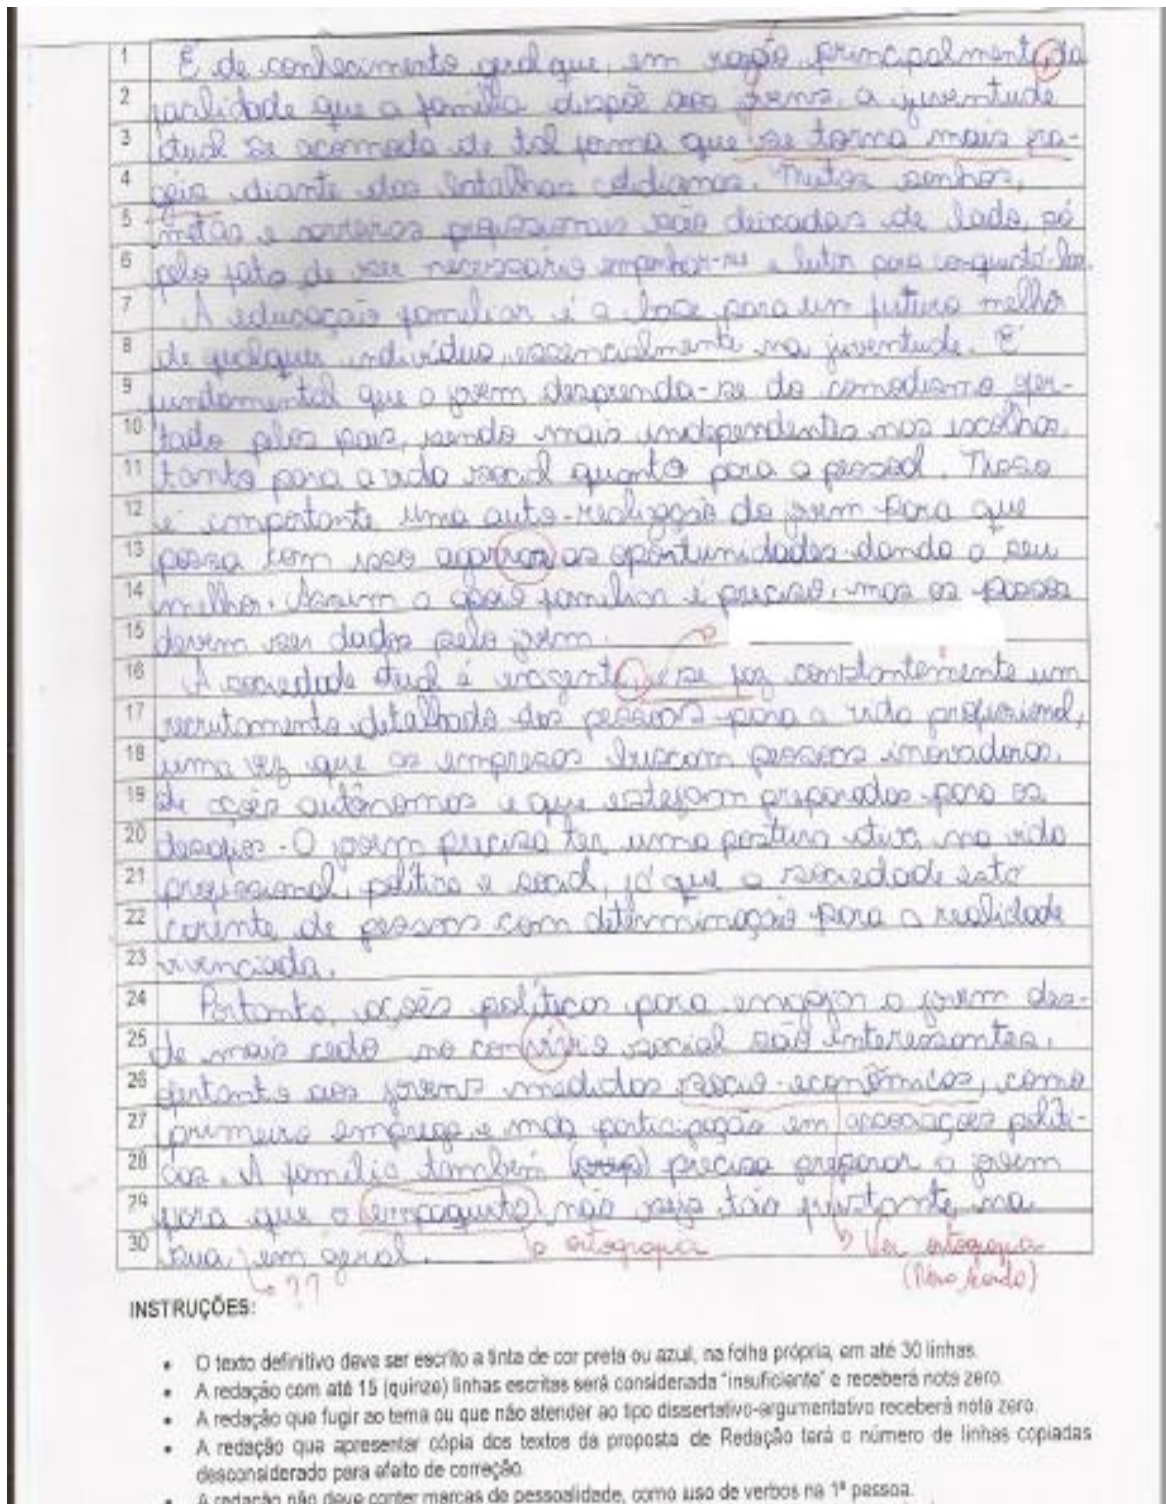 1 É de conhecimento geral que, em razão, principalmente, da
2 facilidade que a família dispõe aos jovens, a juventude
3 atual se acomoda de tal forma que se torna mais frá-
4 geis diante das batalhas cotidianas. Muitos sonhos,
5 metas e carreiras profissionais são deixadas de lado, só
6 pelo fato de ser necessário empenhar-se e lutar para conquistá-los.
7 A educação familiar é a base para um futuro melhor
8 de qualquer indivíduo, essencialmente na juventude. É
9 fundamental que o jovem desprenda-se do comodismo ofer-
10 tado pelos pais, sendo mais independentes nas escolhas,
11 tanto para a vida social quanto para a pessoal.
12 é importante uma auto-realização do jovem para que
13 possa com isso agarrar as oportunidades dando o seu
14 melhor. Assim o apoio familiar é preciso, mas os passos
15 devem ser dados pelo jovem.
16 A sociedade atual é exigente, e se faz constantemente um
17 recrutamento detalhado das pessoas para a vida profissional,
18 uma vez que as empresas buscam pessoas inovadoras,
19 de ações autônomas e que estejam preparadas para os
20 desafios. O jovem precisa ter uma postura ativa na vida
21 profissional, política e social, já que a sociedade está
22 carente de pessoas com determinação para a realidade
23 vivenciada.
24 Portanto, ações políticas para engajar o jovem des-
25 de mais cedo no convívio social são interessantes,
26 ofertando aos jovens medidas sócio-econômicas, como
27 primeiro emprego, e mais participação em associações políti-
28 cas. A família também precisa preparar o jovem
29 para que o não seja tão frustante na
30 sua em geral.
ortografia
Ver ortografia
(Novo Acordo)
??
INSTRUÇÕES:
• O texto definitivo deve ser escrito a tinta de cor preta ou azul, na folha própria, em até 30 linhas.
• A redação com até 15 (quinze) linhas escritas será considerada "insuficiente" e receberá nota zero.
• A redação que fugir ao tema ou que não atender ao tipo dissertativo-argumentativo receberá nota zero.
• A redação que apresentar cópia dos textos da proposta de Redação terá o número de linhas copiadas
desconsiderado para efeito de correção.
• A redação não deve conter marcas de pessoalidade, como uso de verbos na 1ª pessoa.